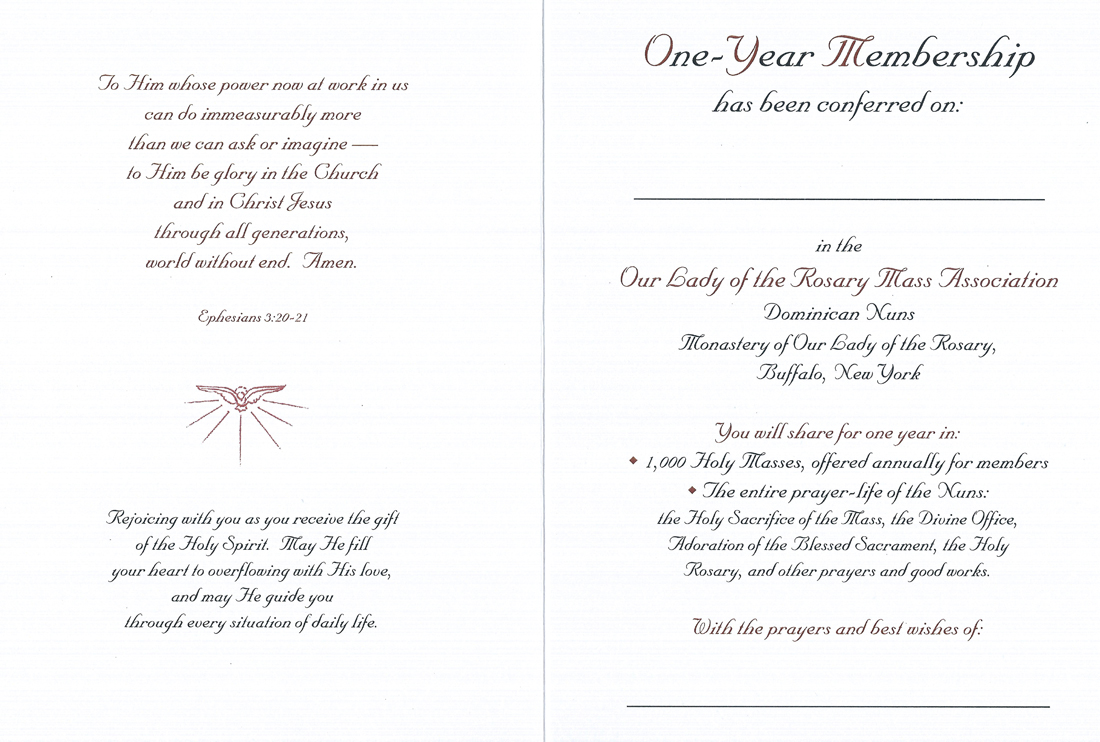 To Him whose power now at work in us
can do immeasurably more
than we can ask or imagine —
to Him be glory in the Church
and in Christ Jesus
through all generations,
world without end. Amen.
Ephesians 3:20-21
Rejoicing with you as you receive the gift
of the Holy Spirit. May He fill
your heart to overflowing with His love,
and may He guide you
through every situation of daily life.
One-Year Membership
has been conferred on:
in the
Our Lady of the Rosary Mass Association
Dominican Nuns
Monastery of Our Lady of the Rosary,
Buffalo, New York
You will share for one year in:
◆ 1,000 Holy Masses, offered annually for members
◆ The entire prayer-life of the Nuns:
the Holy Sacrifice of the Mass, the Divine Office,
Adoration of the Blessed Sacrament, the Holy
Rosary, and other prayers and good works.
With the prayers and best wishes of: